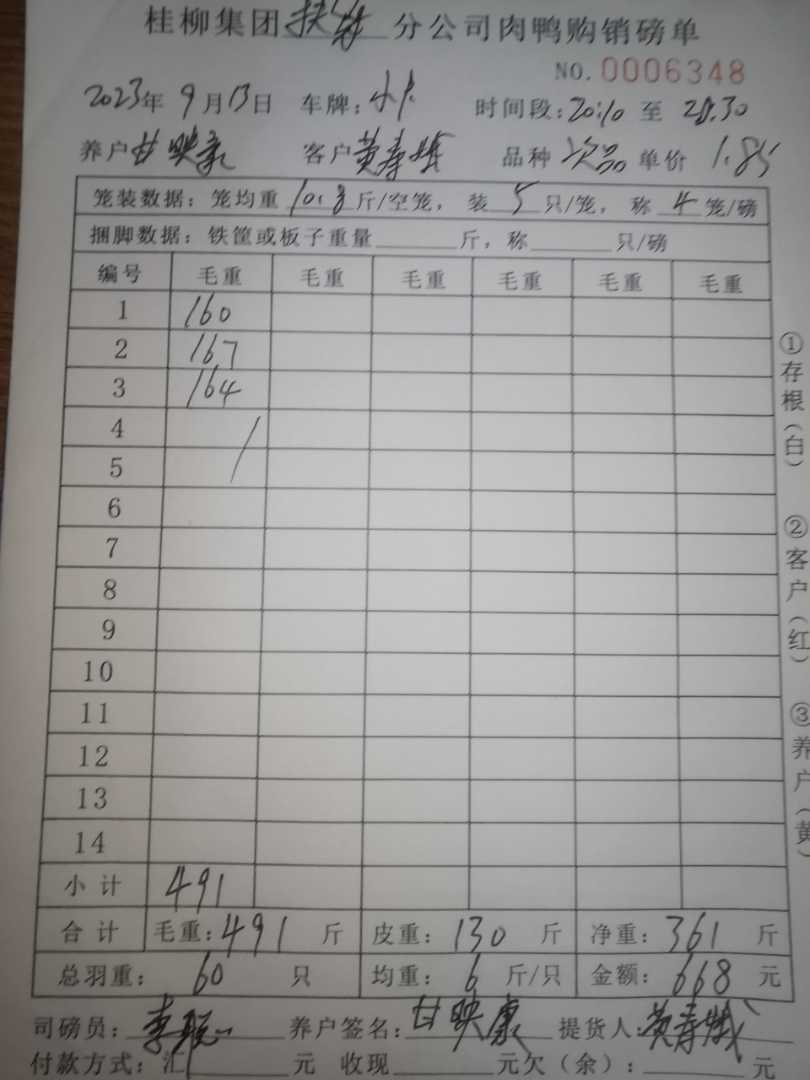 桂柳集团扶绥分公司肉鸭购销磅单
NO. 0006348
2023年 9月13日 车牌: 时间段:20:10 至 20:30
养户 甘映康 客户 黄寿 品种 次品 单价 1.85
笼装数据: 笼均重 10.8 斤/空笼, 装 5 只/笼, 称 4 笼/磅
捆脚数据: 铁筐或板子重量 斤, 称 只/磅
编号 毛重 毛重 毛重 毛重 毛重 毛重
1 160
2 167
3 164
4
5
6
7
8
9
10
11
12
13
14
小计 491
合计 毛重: 491 斤 皮重: 130 斤 净重: 361 斤
总羽重: 60 只 均重: 6 斤/只 金额: 668 元
司磅员: 李 养户签名: 甘映康 提货人: 黄寿
付款方式: 汇 元 收现 元欠(余): 元
①存根(白) ②客户(红) ③养户(黄)